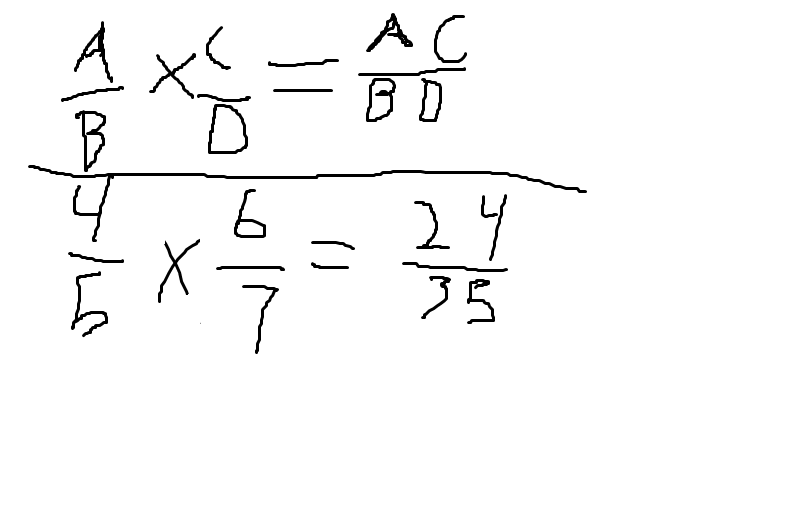 A/B × C/D = AC/BD
4/5 × 6/7 = 24/35